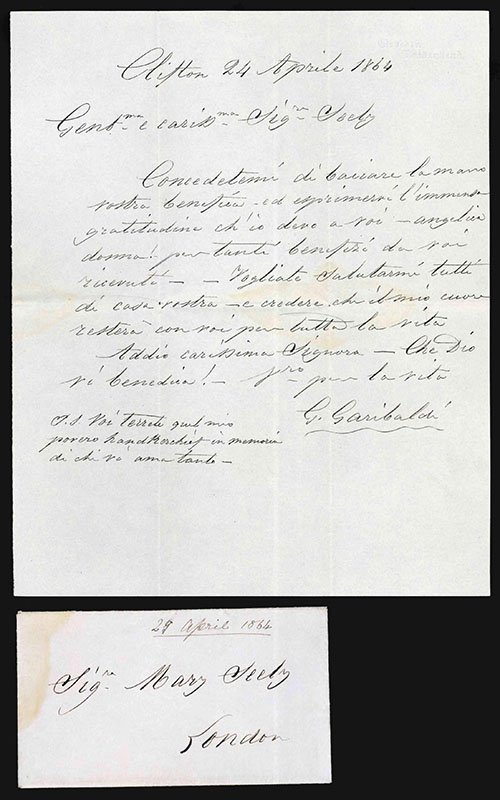 Clifton 24 Aprile 1864
Gent.ma e cariss.ma Sig.ra Seely
Concedetemi di baciare la mano
vostra benefica - ed esprimervi l'immensa
gratitudine ch'io devo a voi - angelica
donna! per tanti benefizi da voi
ricevuti - - Vogliate salutarmi tutti
di casa vostra - e credere che il mio cuore
resterà con voi per tutta la vita
Addio carissima Signora - Che Dio
vi benedica! - per la vita
G. Garibaldi
P.S. Voi terrete quel mio
povero handkerchief in memoria
di chi v'ama tanto -
April 1864
Sig.ra Mary Seely
London